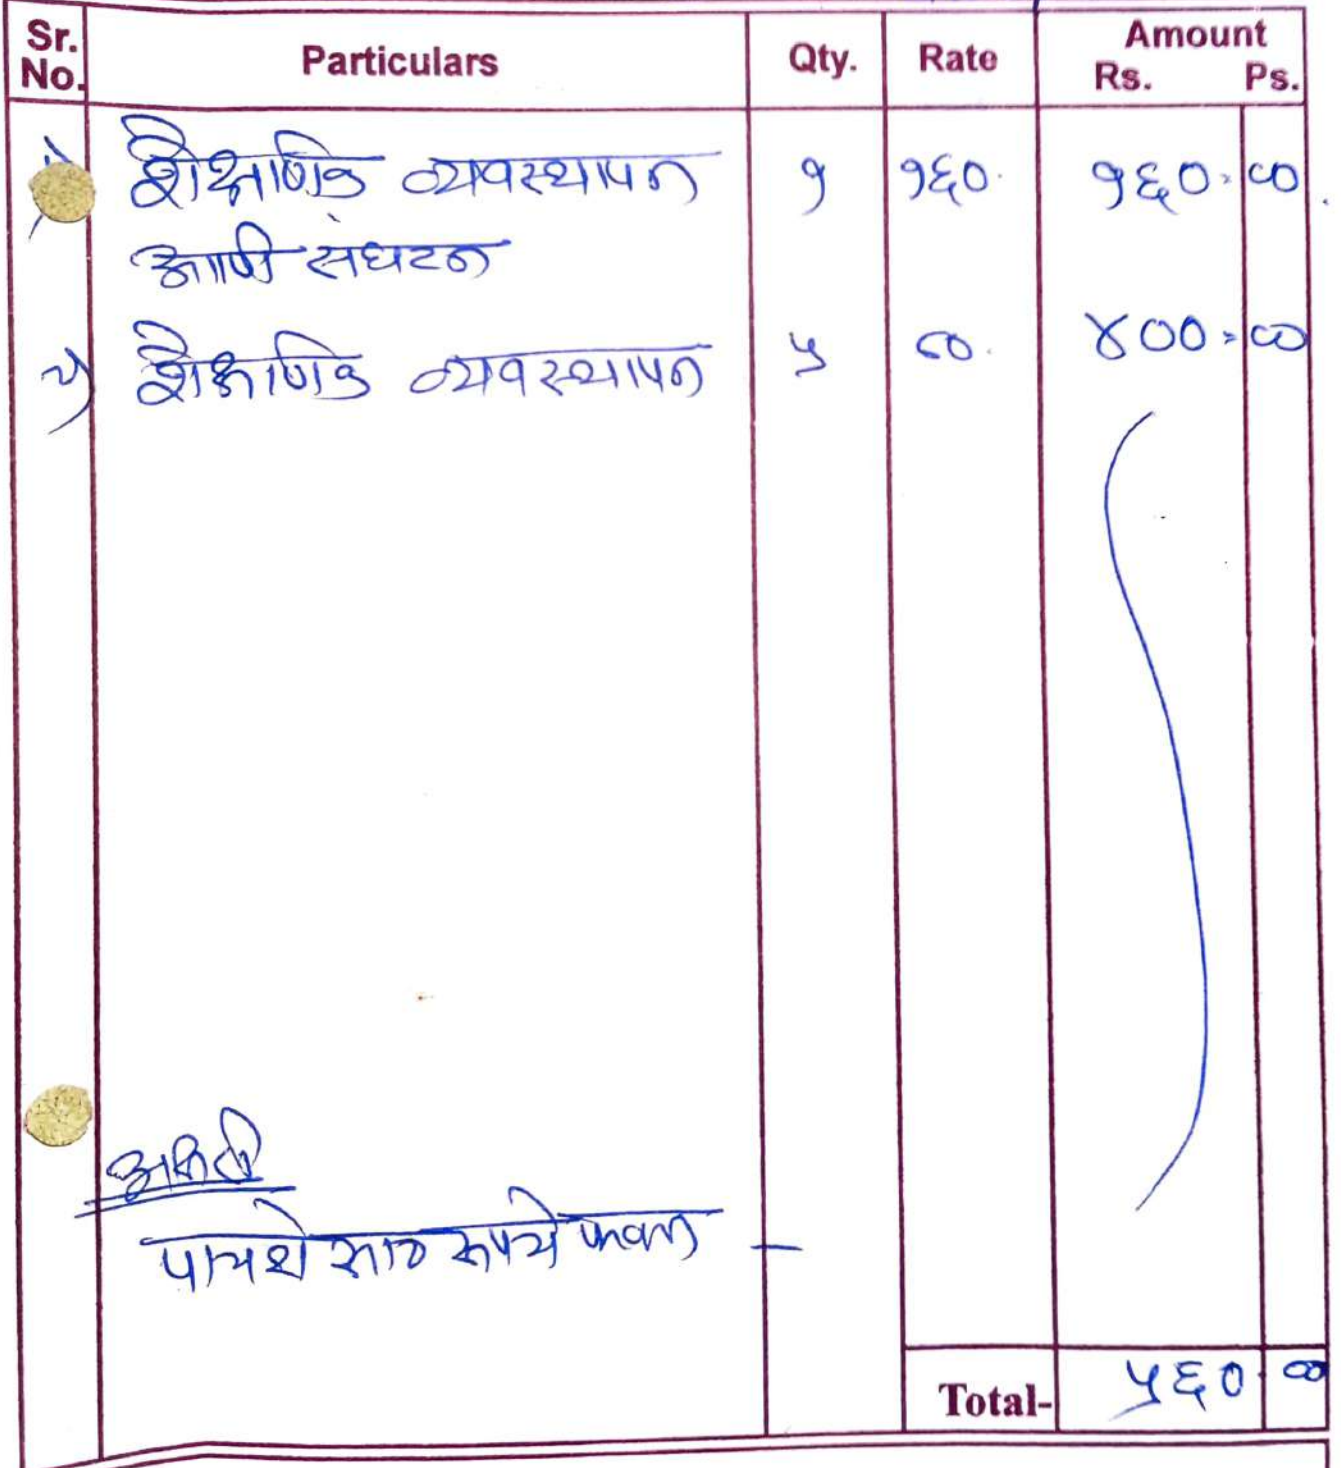 Sr. No. Particulars Qty. Rate Amount Rs. Ps.
१) शैक्षणिक व्यवस्थापन १ १६०. १६०.००
आणी संघटन
२) शैक्षणिक व्यवस्थापन ५ ८०. ४००.००
अक्षरी
पाचशे साठ रूपये फक्त —
Total- ५६०.००